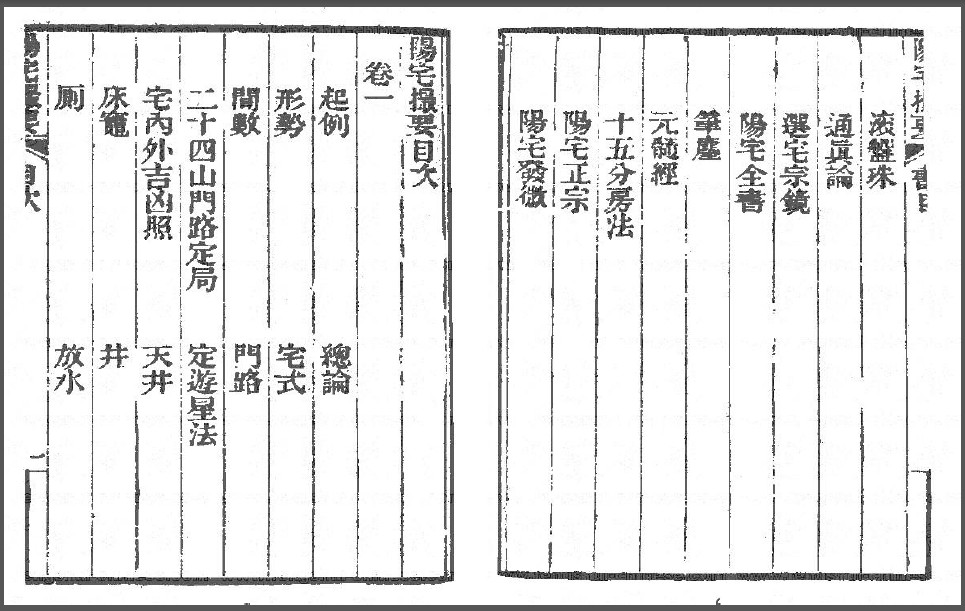 滾盤珠
通眞論
選宅宗鏡
陽宅全書
筆塵
元髓經
十五分房法
陽宅正宗
陽宅發微
陽宅撮要目次
卷一
起例 總論
形勢 宅式
間數 門路
二十四山門路定局 定遊星法
宅內外吉凶照 天井
床竈 井
厠 放水
陽宅撮要 目次 一